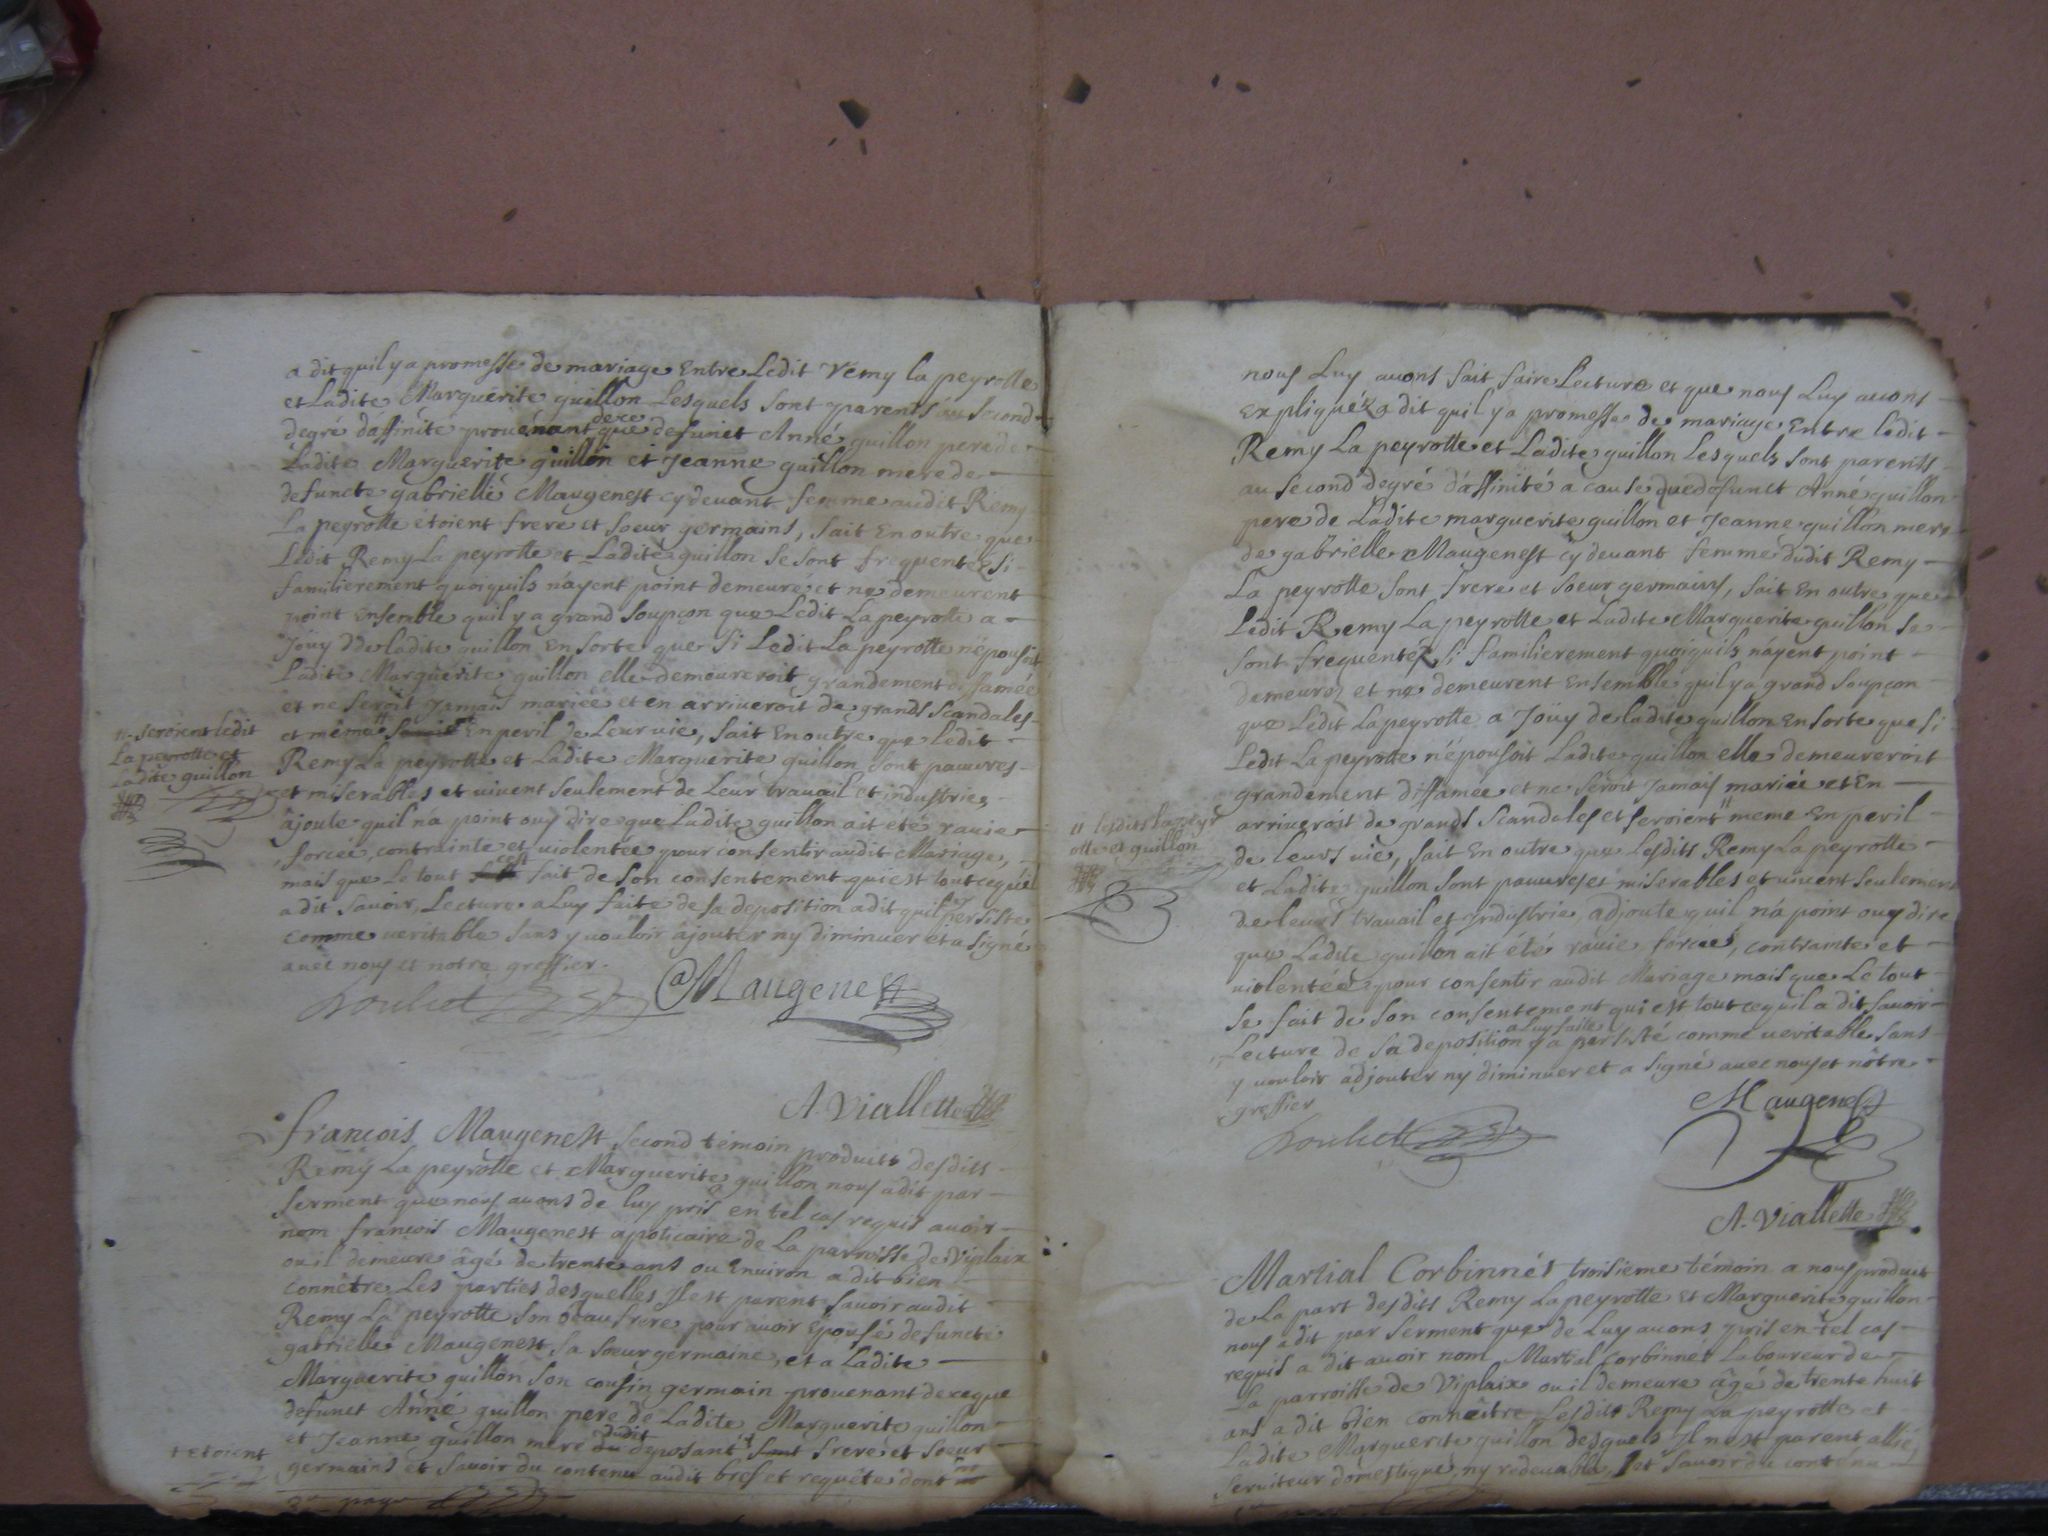 a dit quil y a promesse de mariage Entre Ledit Remy la peyrotte
et Ladite Marguerite guillon Lesquels sont parents au second
degré daffinité prouénant de ce que defunct Anné guillon pere de
Ladite Marguerite guillon et Jeanne guillon mere de
defuncte gabrielle Maugenest cy deuant femme audit Remy
La peyrotte étoient frere et soeur germains, sait En outre que
Ledit Remy La peyrotte et Ladite guillon se sont frequentés si
familierement quoiquils n'ayent point demeuré et ne demeurent
point Ensemble quil y a grand soupçon que Ledit La peyrotte a
Joüy de ladite guillon En sorte que si Ledit La peyrotte n'épousoit
Ladite Marguerite guillon elle demeureroit grandement diffamée
et ne seroit Jamais mariée et en arriueroit de grands scandales
et même " En peril de Leur uie, sait En outre que ledit
" seroient ledit
La peyrotte et
Ladite guillon
Remy La peyrotte et Ladite Marguerite guillon sont pauures
et miserables et uiuent seulement de Leur trauail et industrie,
ajoute quil n'a point ouy dire que Ladite guillon ait eté rauie
forcée, contrainte et uiolentée pour consentir audit Mariage,
mais que Le tout cest fait de son consentement qui est tout ce quil
a dit sauoir, Lecture a Luy faite de sa deposition a dit quil y persiste
comme ueritable sans y uouloir ajouter ny diminuer et a signé
auec nous et notre greffier.
Maugenest
A. Viallette
françois Maugenest second témoin produit desdits
Remy La peyrotte et Marguerite guillon nous a dit par
serment que nous auons de luy pris en tel cas requis auoir
nom françois Maugenest apoticaire de La parroisse de Viplaix
ou il demeure âgé de trente ans ou Enuiron a dit bien
connètre Les parties desquelles Il est parent sauoir audit
Remy La peyrotte son beau frere pour auoir Epousé defuncte
gabrielle Maugenest sa soeur germaine, et a Ladite
Marguerite guillon son cousin germain prouenant de ce que
defunct Anné guillon pere de Ladite Marguerite guillon
et Jeanne guillon mere dudit deposant + frere et soeur
+ Etoient
germains et sauoir du contenu audit bref et requête dont
2e page
nous Luy auons fait faire Lecture et que nous Luy auons
Expliqué a dit quil y a promesse de mariage Entre ledit
Remy La peyrotte et Ladite guillon Lesquels sont parents
au second degré d'affinité a cause que defunct Anné guillon
pere de Ladite marguerite guillon et Jeanne guillon mere
de gabrielle Maugenest cy deuant femme dudit Remy
La peyrotte sont frere et soeur germains, sait En outre que
Ledit Remy La peyrotte et Ladite Marguerite guillon se
sont frequentéz si familierement quoiquils n'ayent point
demeurez et ne demeurent ensemble quil y a grand soupçon
que Ledit Lapeyrotte a Joüy de ladite guillon En sorte que si
Ledit La peyrotte n'épousoit Ladite guillon elle demeureroit
grandement diffamée et ne seroit Jamais mariée et En
arriueroit de grands scandales et seroient " meme En peril
" lesdits la peyr
otte et guillon
de leurs uie, sait En outre que Lesdits Remy La peyrotte
et Ladite guillon sont pauures et miserables et uiuent seulement
de leurs trauail et Industrie, adjoute quil n'a point ouy dire
que Ladite guillon ait été rauie, forcée, contrainte et
uiolentée pour consentir audit Mariage mais que Le tout
se fait de son consentement qui est tout ce quil a dit sauoir
Lecture de sa deposition a Luy faite y a persisté comme ueritable sans
y uouloir adjouter ny diminuer et a signé auec nous et nôtre
greffier
Maugenest
A. Viallette
Martial Corbinnés troisieme témoin a nous produit
de La part desdits Remy Lapeyrotte et Marguerite guillon
nous a dit par serment que de Luy auons pris en tel cas
requis a dit auoir nom Martial Corbinnes Laboureur de
La parroisse de Viplaix ou il demeure âgé de trente huit
ans a dit bien connoitre Lesdits Remy La peyrotte et
Ladite Marguerite guillon desquels Il n'est parent allié,
seruiteur domestique, ny redeuable, et sauoir du contenu